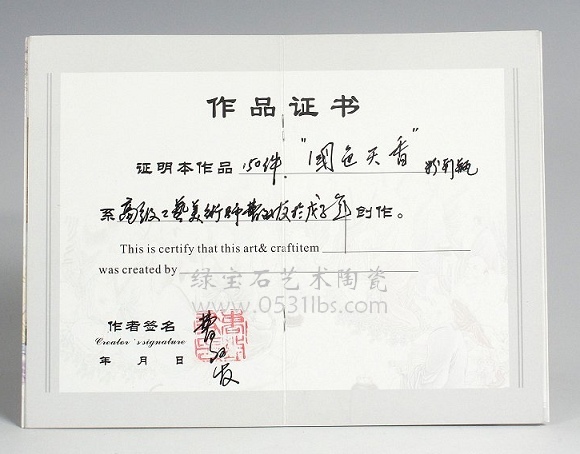 作品证书
证明本作品 150件 "国色天香" 粉彩瓶
系高级工艺美术师曹 于戊子年创作。
This is certify that this art& craftitem
was created by
绿宝石艺术陶瓷
www.0531lbs.com
作者签名
Creator's signature
年 月 日